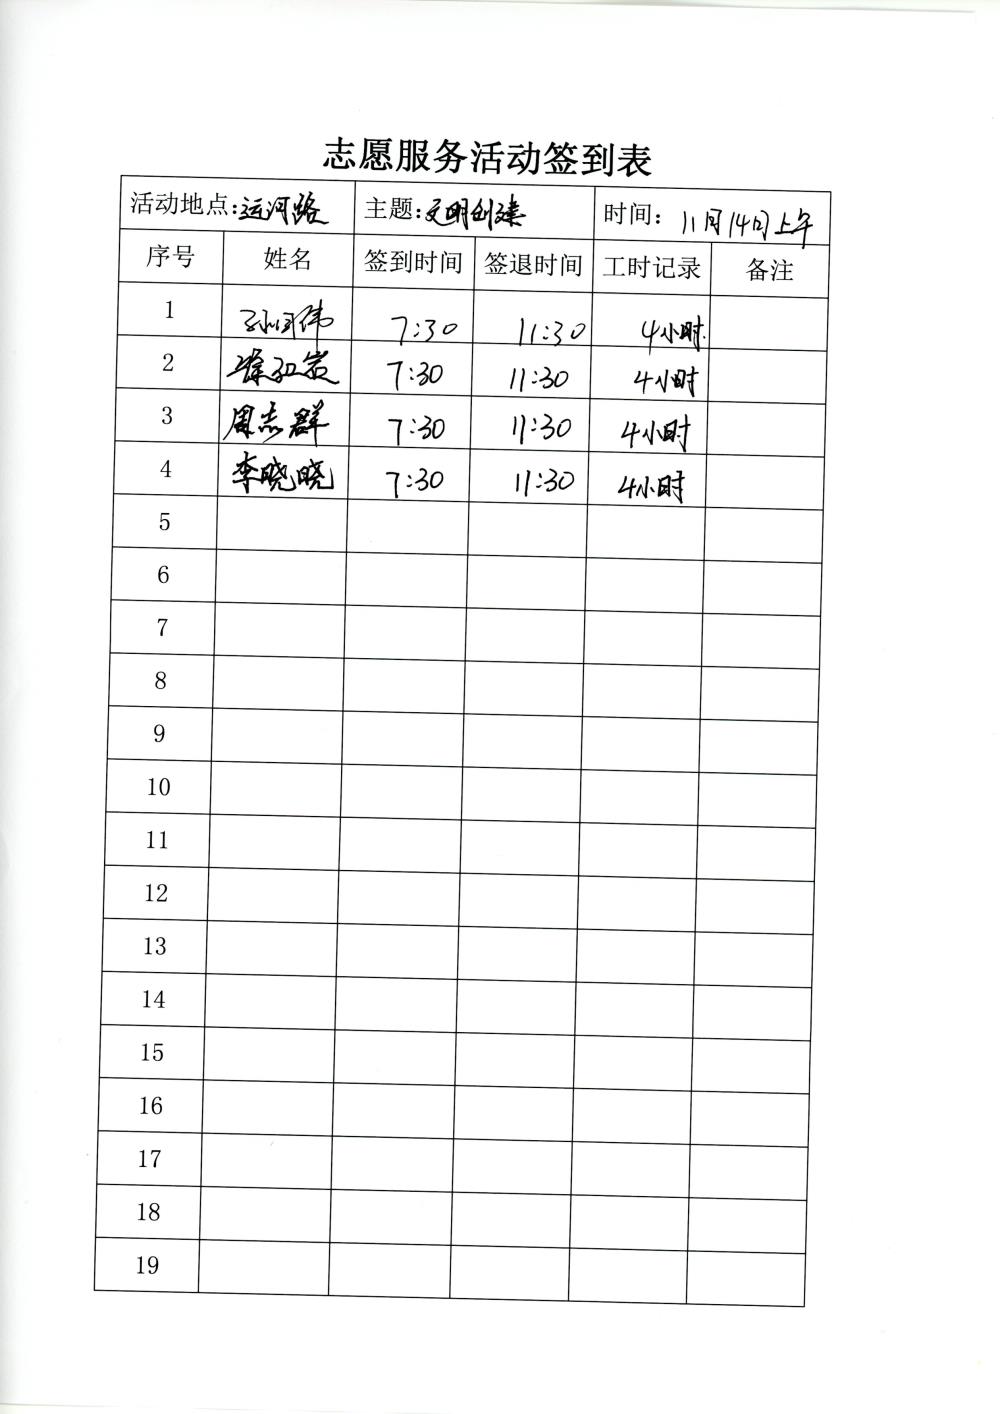 志愿服务活动签到表
活动地点:运河路 主题:文明创建 时间: 11月14日上午
序号 姓名 签到时间 签退时间 工时记录 备注
1 7:30 11:30 4小时
2 徐红岩 7:30 11:30 4小时
3 周志群 7:30 11:30 4小时
4 李晓晓 7:30 11:30 4小时
5
6
7
8
9
10
11
12
13
14
15
16
17
18
19